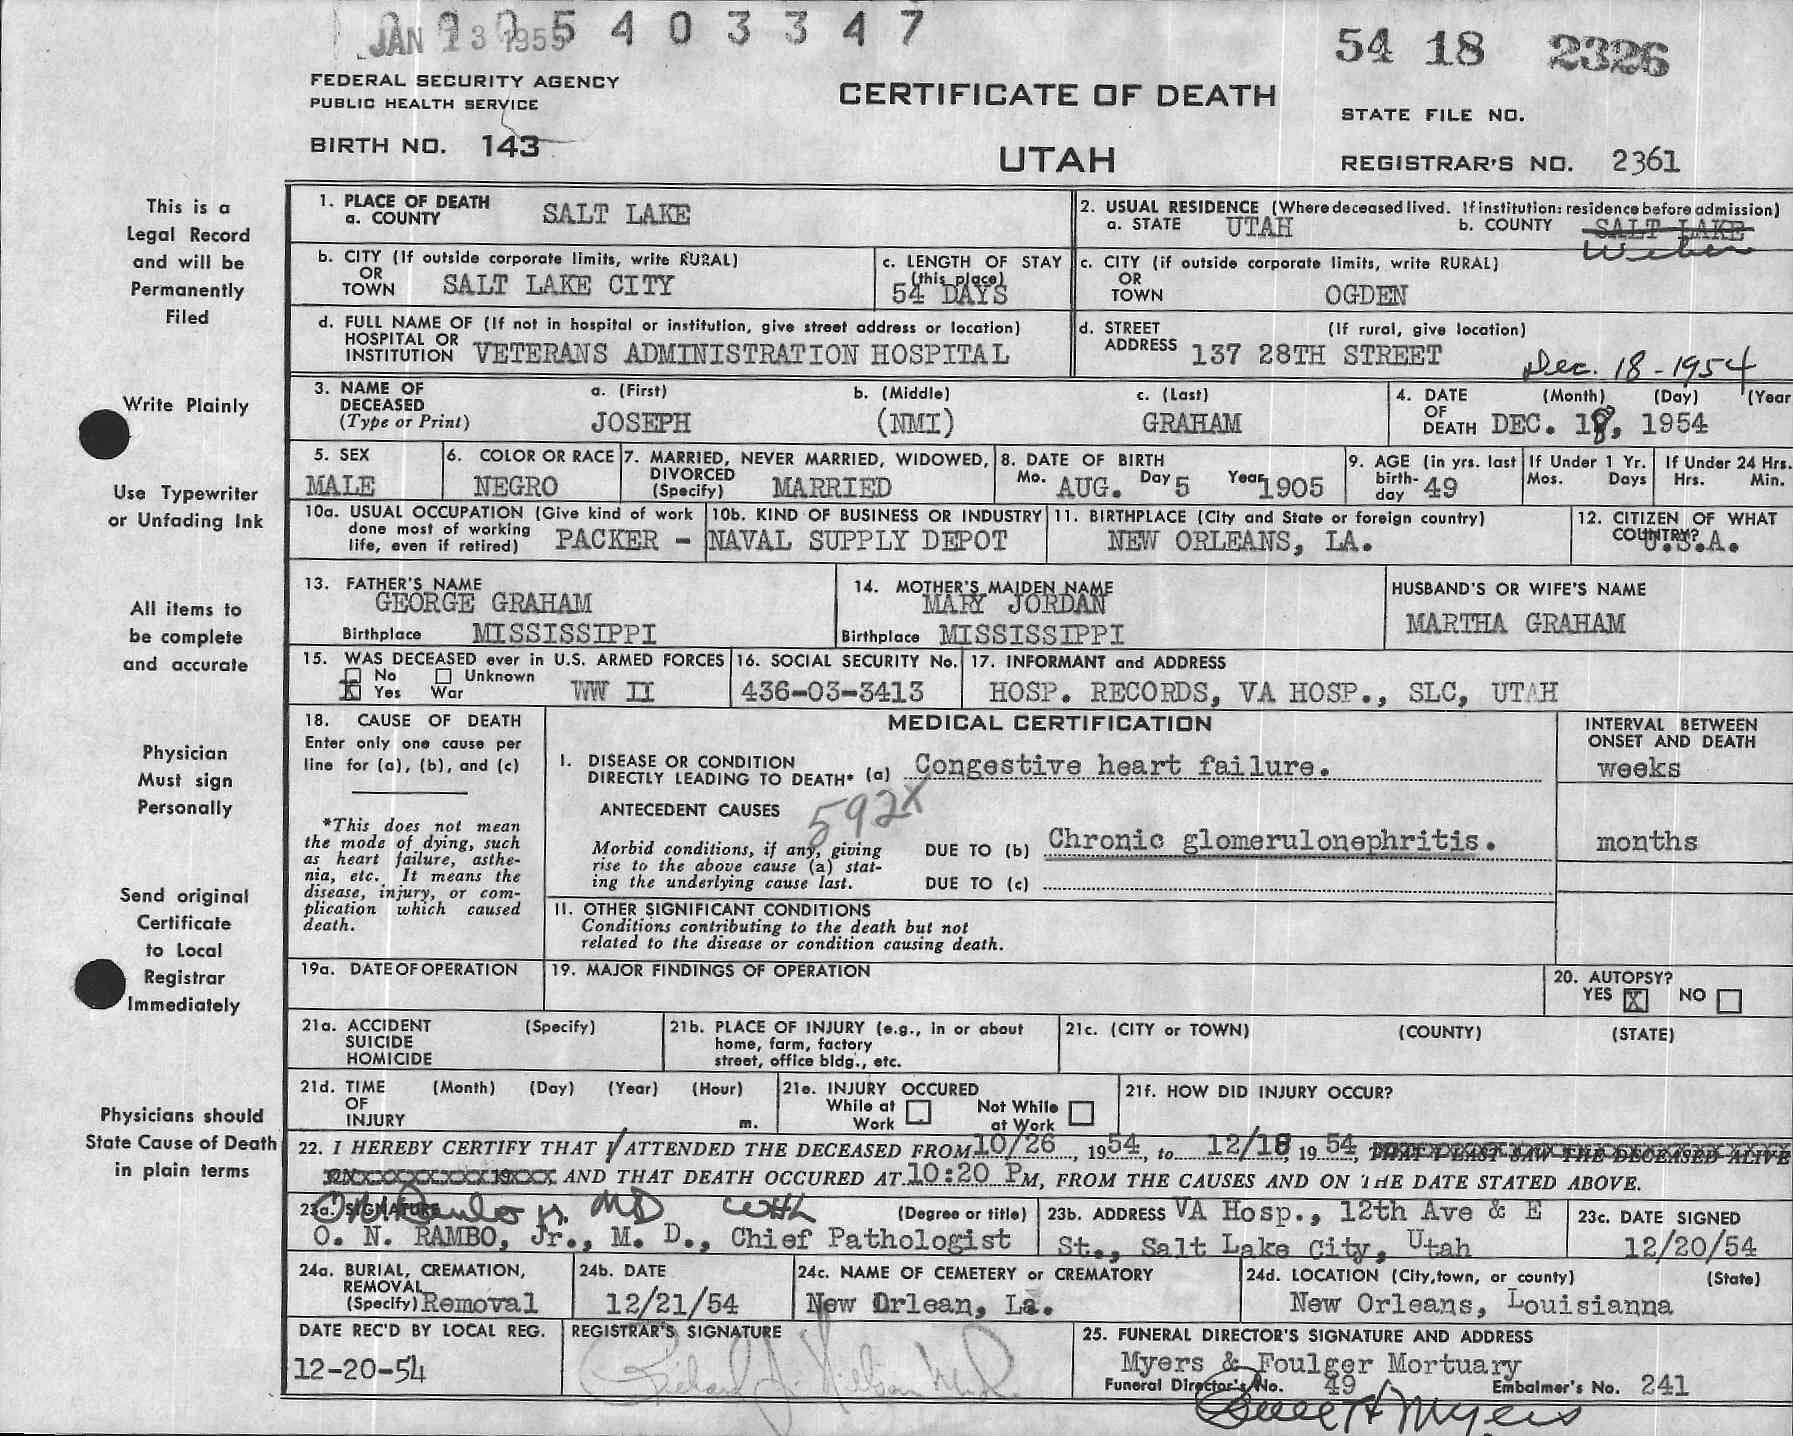 JAN 13 1955 5403347
54 18 2326
FEDERAL SECURITY AGENCY
PUBLIC HEALTH SERVICE
CERTIFICATE OF DEATH
STATE FILE NO.
BIRTH NO. 143
UTAH
REGISTRAR'S NO. 2361
This is a
Legal Record
and will be
Permanently
Filed
Write Plainly
Use Typewriter
or Unfading Ink
All items to
be complete
and accurate
Physician
Must sign
Personally
Send original
Certificate
to Local
Registrar
Immediately
Physicians should
State Cause of Death
in plain terms
1. PLACE OF DEATH
a. COUNTY SALT LAKE
2. USUAL RESIDENCE (Where deceased lived. If institution: residence before admission)
a. STATE UTAH b. COUNTY SALT LAKE
Weber
b. CITY (If outside corporate limits, write RURAL)
OR
TOWN SALT LAKE CITY
c. LENGTH OF STAY
(this place)
54 DAYS
c. CITY (if outside corporate limits, write RURAL)
OR
TOWN OGDEN
d. FULL NAME OF (If not in hospital or institution, give street address or location)
HOSPITAL OR
INSTITUTION VETERANS ADMINISTRATION HOSPITAL
d. STREET (If rural, give location)
ADDRESS 137 28TH STREET
Dec. 18-1954
3. NAME OF
DECEASED
(Type or Print)
a. (First) b. (Middle) c. (Last)
JOSEPH (NMI) GRAHAM
4. DATE (Month) (Day) (Year
OF
DEATH DEC. 18, 1954
5. SEX
MALE
6. COLOR OR RACE
NEGRO
7. MARRIED, NEVER MARRIED, WIDOWED,
DIVORCED
(Specify) MARRIED
8. DATE OF BIRTH
Mo. AUG. Day 5 Year 1905
9. AGE (in yrs. last
birth-
day 49
If Under 1 Yr.
Mos. Days
If Under 24 Hrs.
Hrs. Min.
10a. USUAL OCCUPATION (Give kind of work
done most of working
life, even if retired) PACKER -
10b. KIND OF BUSINESS OR INDUSTRY
NAVAL SUPPLY DEPOT
11. BIRTHPLACE (City and State or foreign country)
NEW ORLEANS, LA.
12. CITIZEN OF WHAT
COUNTRY?
U.S.A.
13. FATHER'S NAME
GEORGE GRAHAM
Birthplace MISSISSIPPI
14. MOTHER'S MAIDEN NAME
MARY JORDAN
Birthplace MISSISSIPPI
HUSBAND'S OR WIFE'S NAME
MARTHA GRAHAM
15. WAS DECEASED ever in U.S. ARMED FORCES
No Unknown
X Yes War WW II
16. SOCIAL SECURITY No.
436-03-3413
17. INFORMANT and ADDRESS
HOSP. RECORDS, VA HOSP., SLC, UTAH
18. CAUSE OF DEATH
Enter only one cause per
line for (a), (b), and (c)
*This does not mean
the mode of dying, such
as heart failure, asthe-
nia, etc. It means the
disease, injury, or com-
plication which caused
death.
MEDICAL CERTIFICATION
INTERVAL BETWEEN
ONSET AND DEATH
I. DISEASE OR CONDITION
DIRECTLY LEADING TO DEATH* (a) Congestive heart failure.
weeks
ANTECEDENT CAUSES
592X
Morbid conditions, if any, giving
rise to the above cause (a) stat-
ing the underlying cause last.
DUE TO (b) Chronic glomerulonephritis.
months
DUE TO (c)
II. OTHER SIGNIFICANT CONDITIONS
Conditions contributing to the death but not
related to the disease or condition causing death.
19a. DATE OF OPERATION
19. MAJOR FINDINGS OF OPERATION
20. AUTOPSY?
YES X NO
21a. ACCIDENT (Specify)
SUICIDE
HOMICIDE
21b. PLACE OF INJURY (e.g., in or about
home, farm, factory
street, office bldg., etc.
21c. (CITY or TOWN) (COUNTY) (STATE)
21d. TIME (Month) (Day) (Year) (Hour)
OF
INJURY m.
21e. INJURY OCCURED
While at Not While
Work at Work
21f. HOW DID INJURY OCCUR?
22. I HEREBY CERTIFY THAT I ATTENDED THE DECEASED FROM 10/26, 1954, to 12/18, 1954, THAT I LAST SAW THE DECEASED ALIVE
ON 19 AND THAT DEATH OCCURED AT 10:20 PM, FROM THE CAUSES AND ON THE DATE STATED ABOVE.
23a. SIGNATURE (Degree or title)
O. N. Rambo Jr. MD
O. N. RAMBO, Jr., M. D., Chief Pathologist
23b. ADDRESS VA Hosp., 12th Ave & E
St., Salt Lake City, Utah
23c. DATE SIGNED
12/20/54
24a. BURIAL, CREMATION,
REMOVAL
(Specify) Removal
24b. DATE
12/21/54
24c. NAME OF CEMETERY or CREMATORY
New Orlean, La.
24d. LOCATION (City, town, or county) (State)
New Orleans, Louisianna
DATE REC'D BY LOCAL REG.
12-20-54
REGISTRAR'S SIGNATURE
25. FUNERAL DIRECTOR'S SIGNATURE AND ADDRESS
Myers & Foulger Mortuary
Funeral Director's No. 49 Embalmer's No. 241
Myers